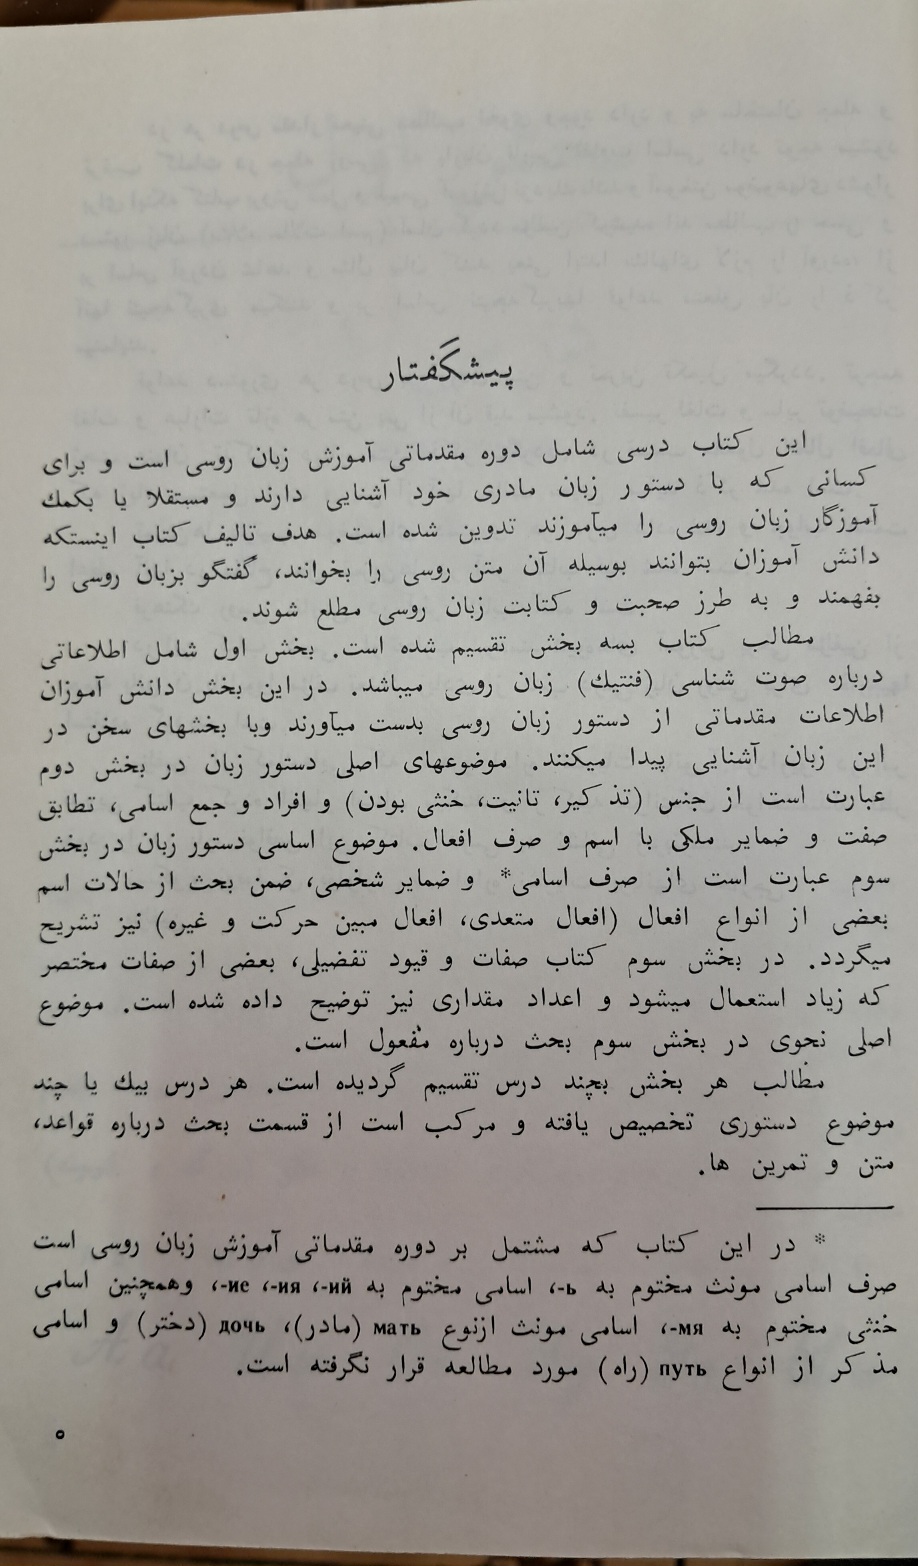 پیشگفتار
این کتاب درسی شامل دوره مقدماتی آموزش زبان روسی است و برای
کسانی که با دستور زبان مادری خود آشنایی دارند و مستقلا یا بکمك
آموزگار زبان روسی را میآموزند تدوین شده است. هدف تالیف کتاب اینستکه
دانش آموزان بتوانند بوسیله آن متن روسی را بخوانند، گفتگو بزبان روسی را
بفهمند و به طرز صحبت و کتابت زبان روسی مطلع شوند.
مطالب کتاب بسه بخش تقسیم شده است. بخش اول شامل اطلاعاتی
درباره صوت شناسی (فنتیك) زبان روسی میباشد. در این بخش دانش آموزان
اطلاعات مقدماتی از دستور زبان روسی بدست میآورند وبا بخشهای سخن در
این زبان آشنایی پیدا میکنند. موضوعهای اصلی دستور زبان در بخش دوم
عبارت است از جنس (تذکیر، تانیت، خنثی بودن) و افراد و جمع اسامی، تطابق
صفت و ضمایر ملکی با اسم و صرف افعال. موضوع اساسی دستور زبان در بخش
سوم عبارت است از صرف اسامی* و ضمایر شخصی، ضمن بحث از حالات اسم
بعضی از انواع افعال (افعال متعدی، افعال مبین حرکت و غیره) نیز تشریح
میگردد. در بخش سوم کتاب صفات و قیود تفضیلی، بعضی از صفات مختصر
که زیاد استعمال میشود و اعداد مقداری نیز توضیح داده شده است. موضوع
اصلی نحوی در بخش سوم بحث درباره مفعول است.
مطالب هر بخش بچند درس تقسیم گردیده است. هر درس بیك یا چند
موضوع دستوری تخصیص یافته و مرکب است از قسمت بحث درباره قواعد،
متن و تمرین ها.
* در این کتاب که مشتمل بر دوره مقدماتی آموزش زبان روسی است
صرف اسامی مونث مختوم به ь-، اسامی مختوم به ий-، ия-، ие-، وهمچنین اسامی
خنثی مختوم به мя-، اسامی مونث ازنوع мать (مادر)، дочь (دختر) و اسامی
مذکر از انواع путь (راه) مورد مطالعه قرار نگرفته است.
٥